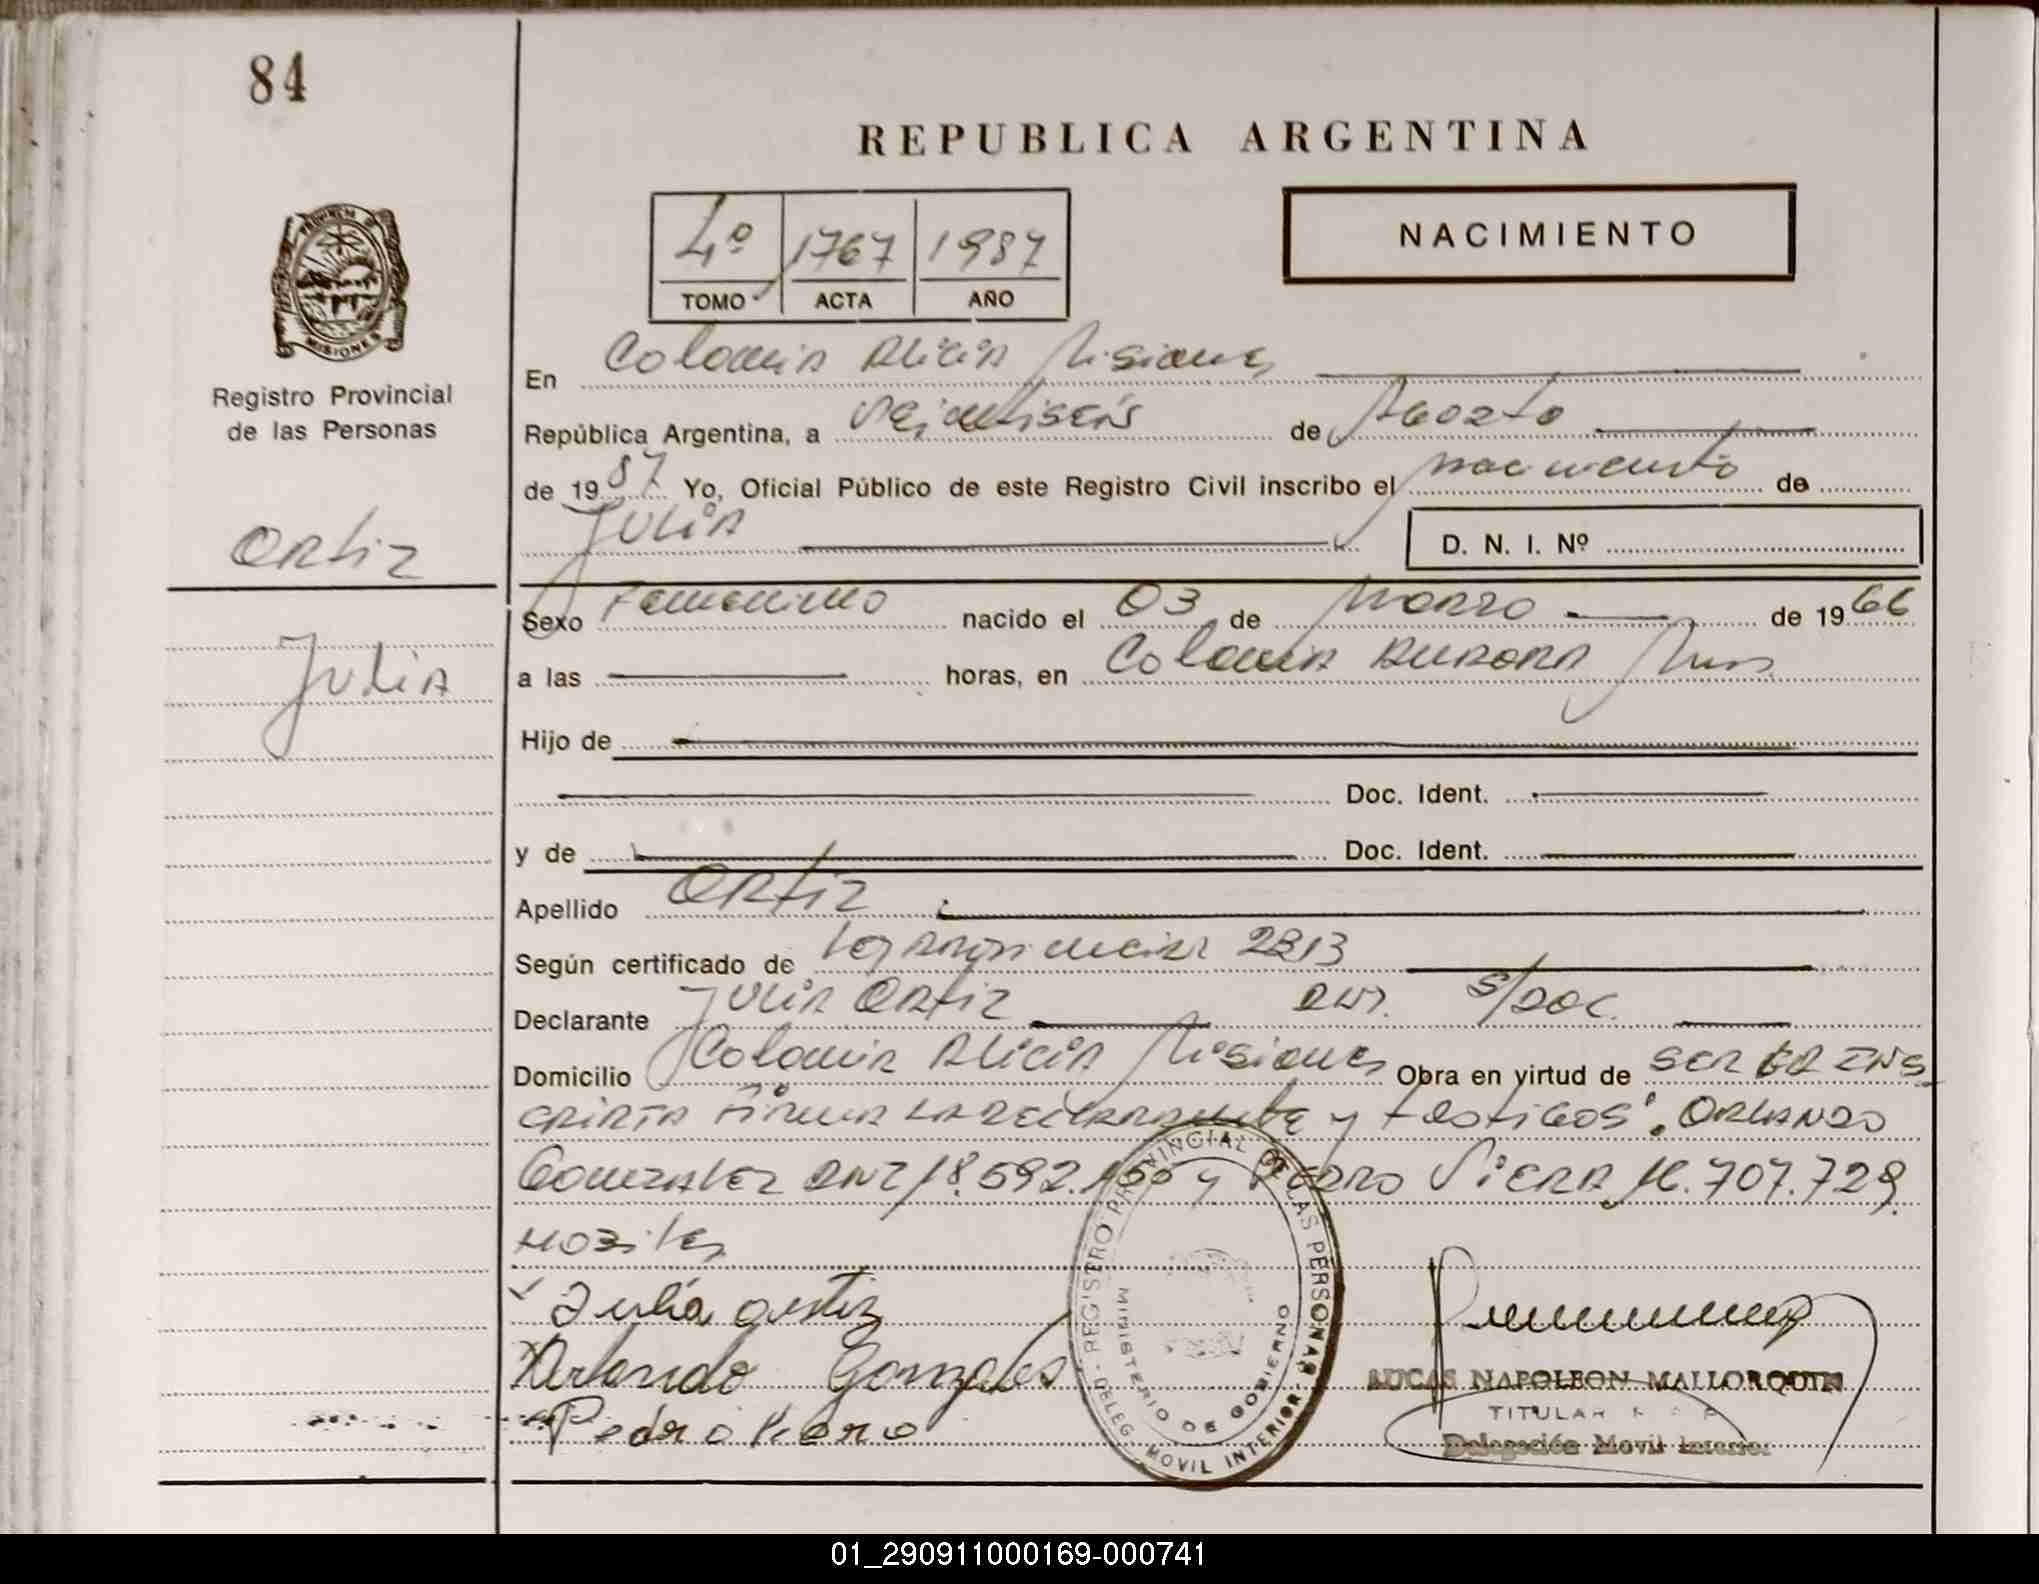 84
REPUBLICA ARGENTINA
4º 1767 1987
TOMO ACTA AÑO
NACIMIENTO
PROVINCIA DE MISIONES
Registro Provincial
de las Personas
Ortiz
Julia
En Colonia Alicia Misiones
República Argentina, a Veintiseis de Agosto
de 1987 Yo, Oficial Público de este Registro Civil inscribo el nacimiento de
Julia D. N. I. Nº
Sexo Femenino nacido el 03 de Marzo de 1966
a las horas, en Colonia Aurora Mnes
Hijo de
Doc. Ident.
y de Doc. Ident.
Apellido Ortiz
Según certificado de Ley Provincial 2213
Declarante Julia Ortiz DNI. S/Doc.
Domicilio Colonia Alicia Misiones Obra en virtud de ser la ins
cripta Firma la declarante y testigos: Orlando
Gonzalez DNI 18.692.150 y Pedro Viera 16.707.729
Julia ortiz
Orlando Gonzales
Pedro Viera
REGISTRO PROVINCIAL DE LAS PERSONAS
MINISTERIO DE GOBIERNO
DELEG. MOVIL INTERIOR
LUCAS NAPOLEON MALLORQUIN
TITULAR
Delegación Movil Interior
01_290911000169-000741